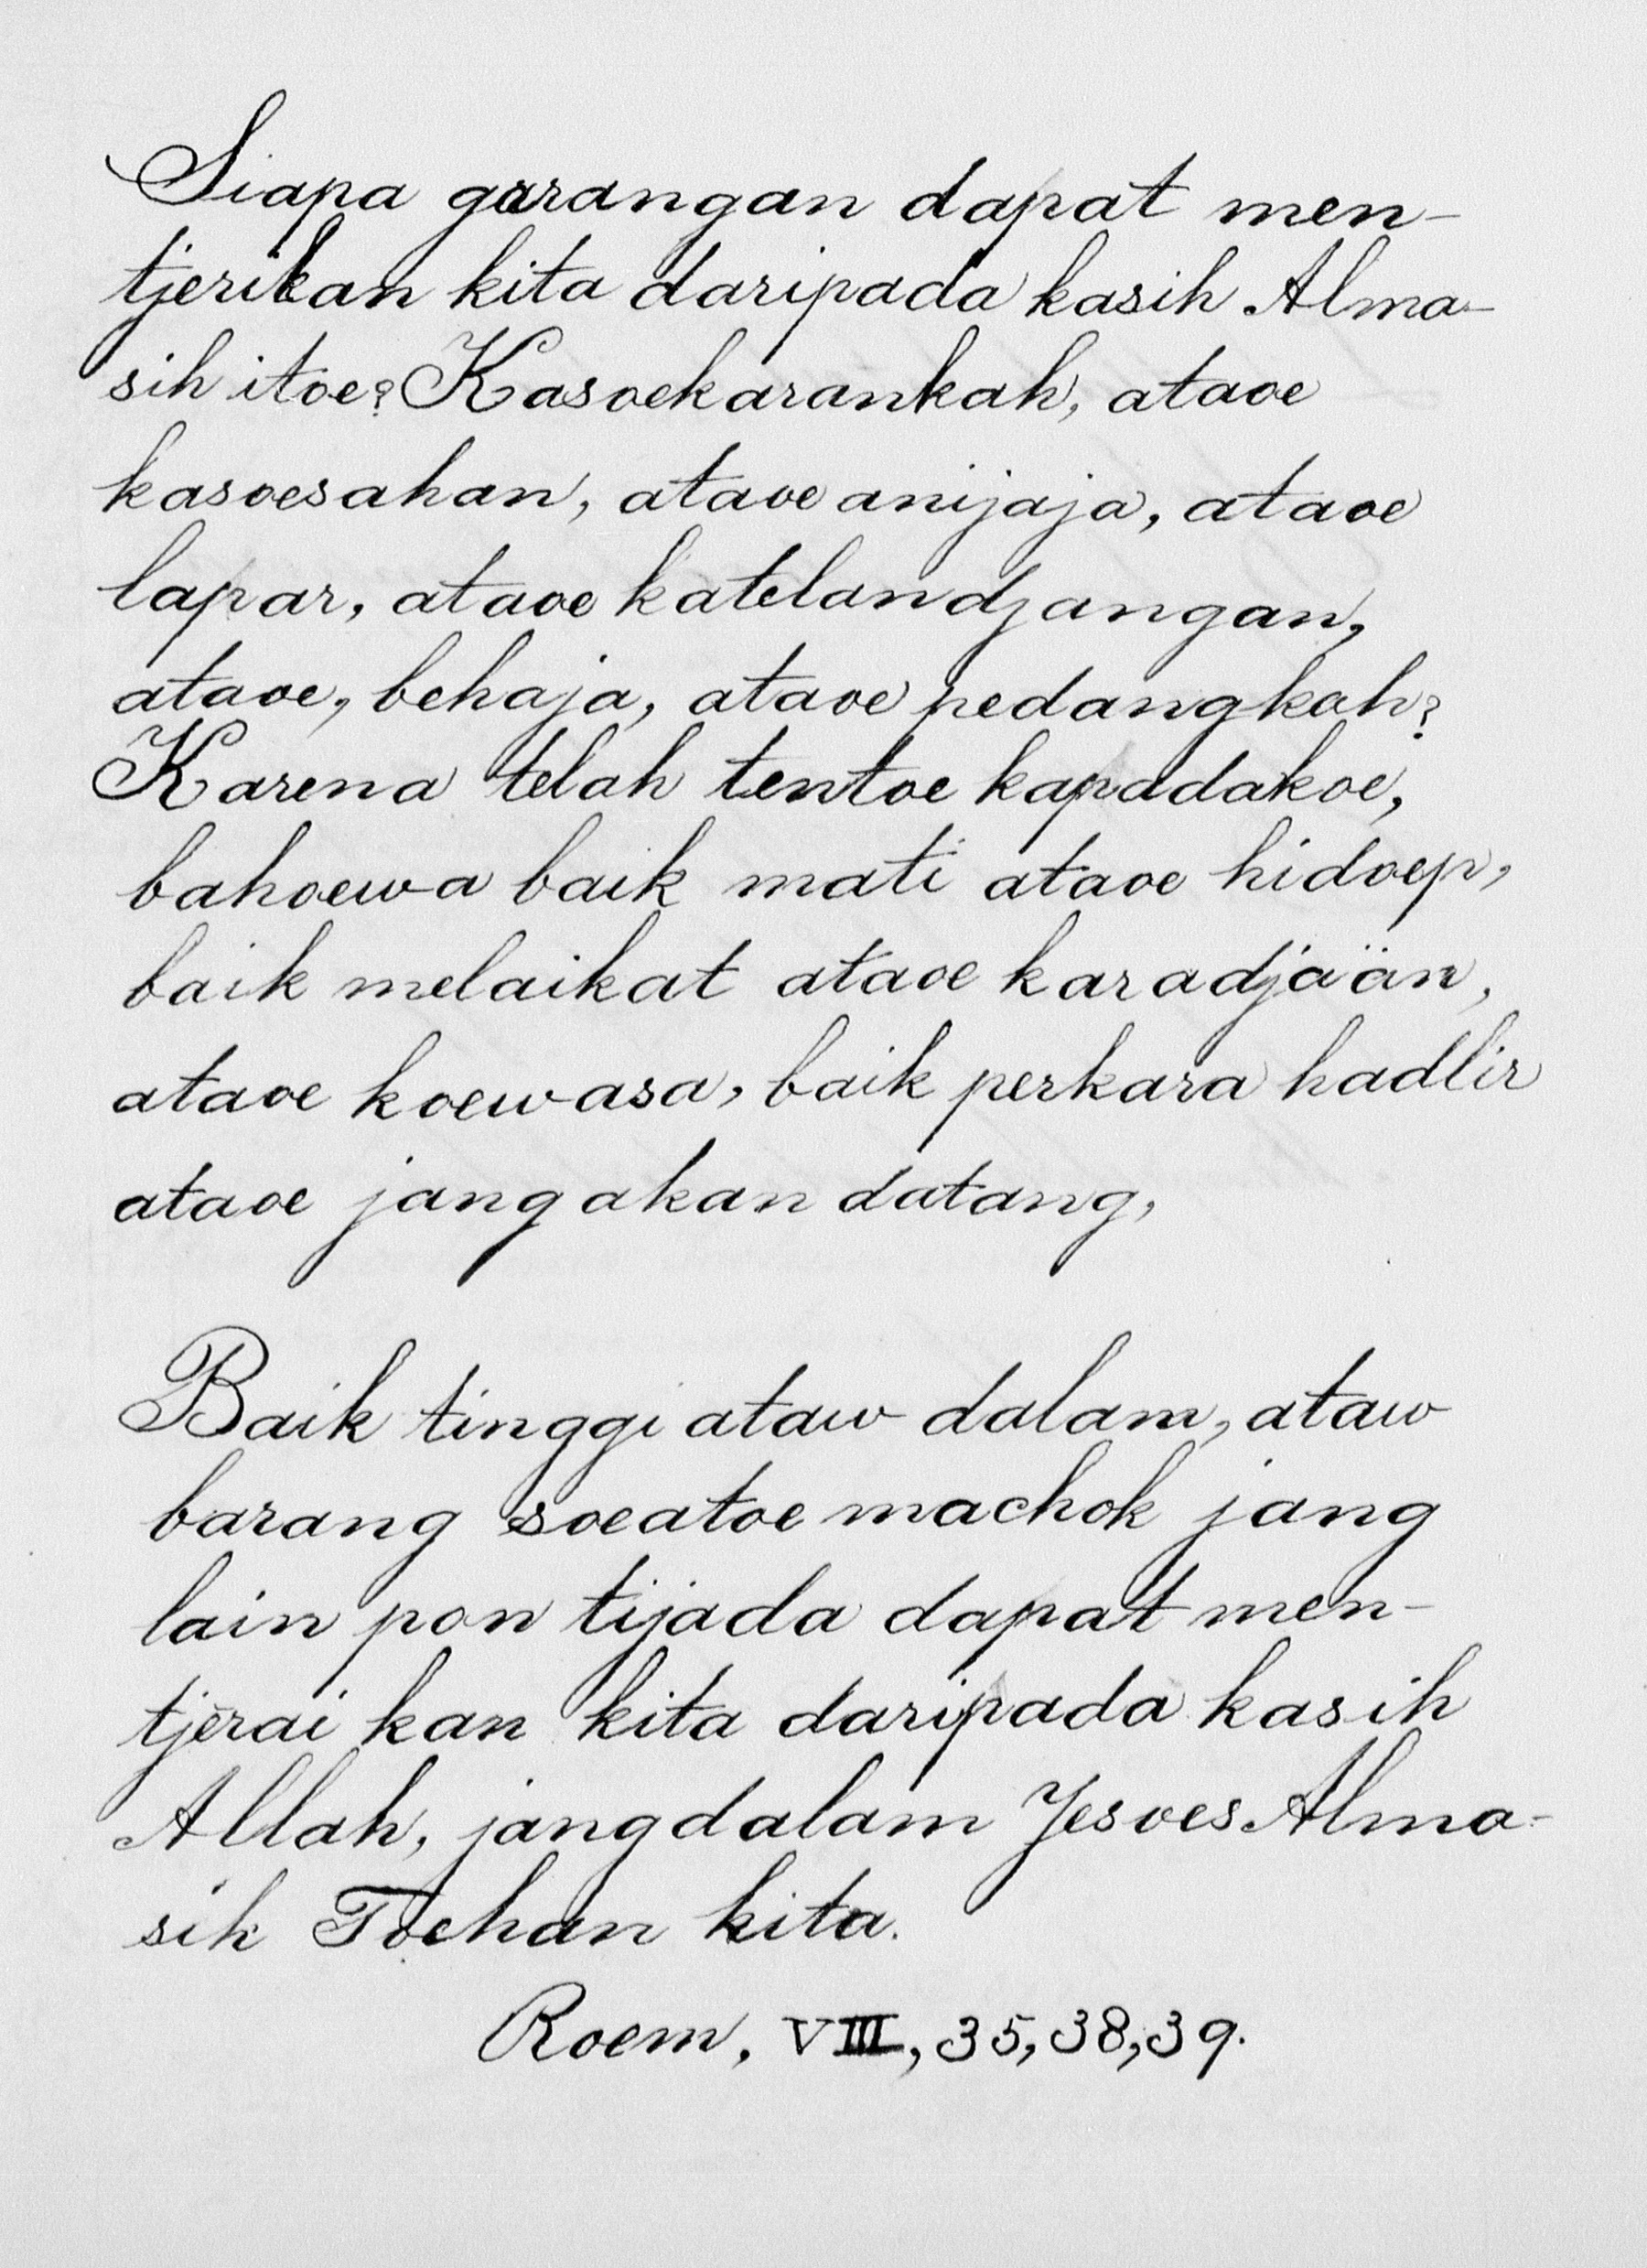 Siapa garangan dapat men-
tjerikan kita daripada kasih Alma-
sih itoe? Kasoekarankah, ataoe
kasoesahan, ataoe anijaja, ataoe
lapar, ataoe katelandjangan,
ataoe, behaja, ataoe pedangkah?
Karena telah tentoe kapadakoe,
bahoewa baik mati ataoe hidoep,
baik melaikat ataoe karadjaän,
ataoe koewasa, baik perkara hadlir
ataoe jang akan datang,
Baik tinggi ataw dalam, ataw
barang soeatoe machok jang
lain pon tijada dapat men-
tjerai kan kita daripada kasih
Allah, jang dalam Jesoes Alma-
sih Toehan kita.
Roem, VIII, 35, 38, 39.